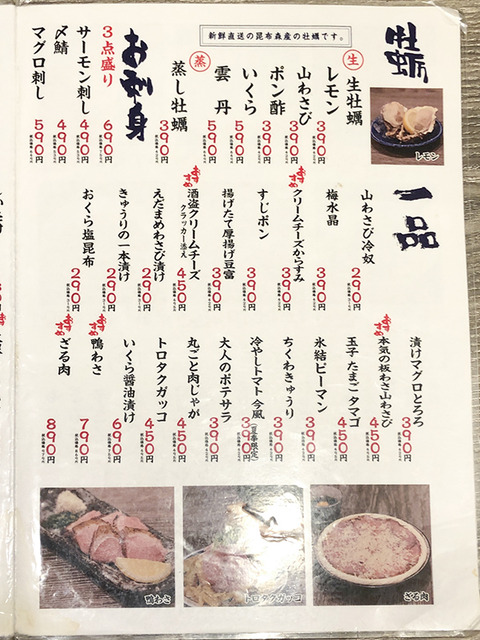 牡蛎
新鮮直送の昆布森産の牡蠣です。
生
生牡蠣
レモン 390円
山わさび 390円
ポン酢 390円
いくら 590円
雲丹 590円
蒸
蒸し牡蠣 390円
レモン
お刺身
3点盛り 690円
サーモン刺し 490円
〆鯖 490円
マグロ刺し 590円
一品
山わさび冷奴 290円
梅水晶 390円
おすすめ
クリームチーズからすみ 390円
すじポン 390円
揚げたて厚揚げ豆富 390円
おすすめ
酒盗クリームチーズ
クラッカー添え 450円
えだまめわさび漬け 290円
きゅうりの一本漬け 290円
おくら塩昆布 290円
漬けマグロとろろ 390円
おすすめ
本気の板わさ山わさび 450円
玉子 たまご タマゴ 450円
氷結ピーマン 390円
ちくわきゅうり 390円
冷やしトマト今風(夏季限定) 390円
大人のポテサラ 390円
丸ごと肉じゃが 450円
トロタクガッコ 450円
いくら醤油漬け 690円
おすすめ
鴨わさ 790円
おすすめ
ざる肉 890円
鴨わさ
トロタクガッコ
ざる肉